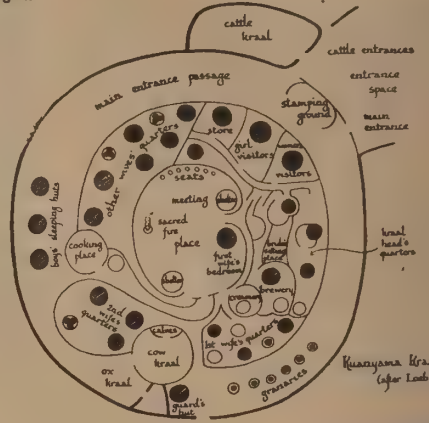 cattle
kraal
cattle entrances
main entrance passage
entrance
space
stamping
ground
main
entrance
store
girl
visitors
women
visitors
other wives' quarters
seats
meeting
shelter
sacred
fire
place
first
wife's
bedroom
boys' sleeping huts
cooking
place
kraal
head's
quarters
brewery
shelter
2nd
wife's
quarters
calves
1st wife's quarters
cow
kraal
ox
kraal
granaries
guard's
hut
Kuanyama
(after Loeb